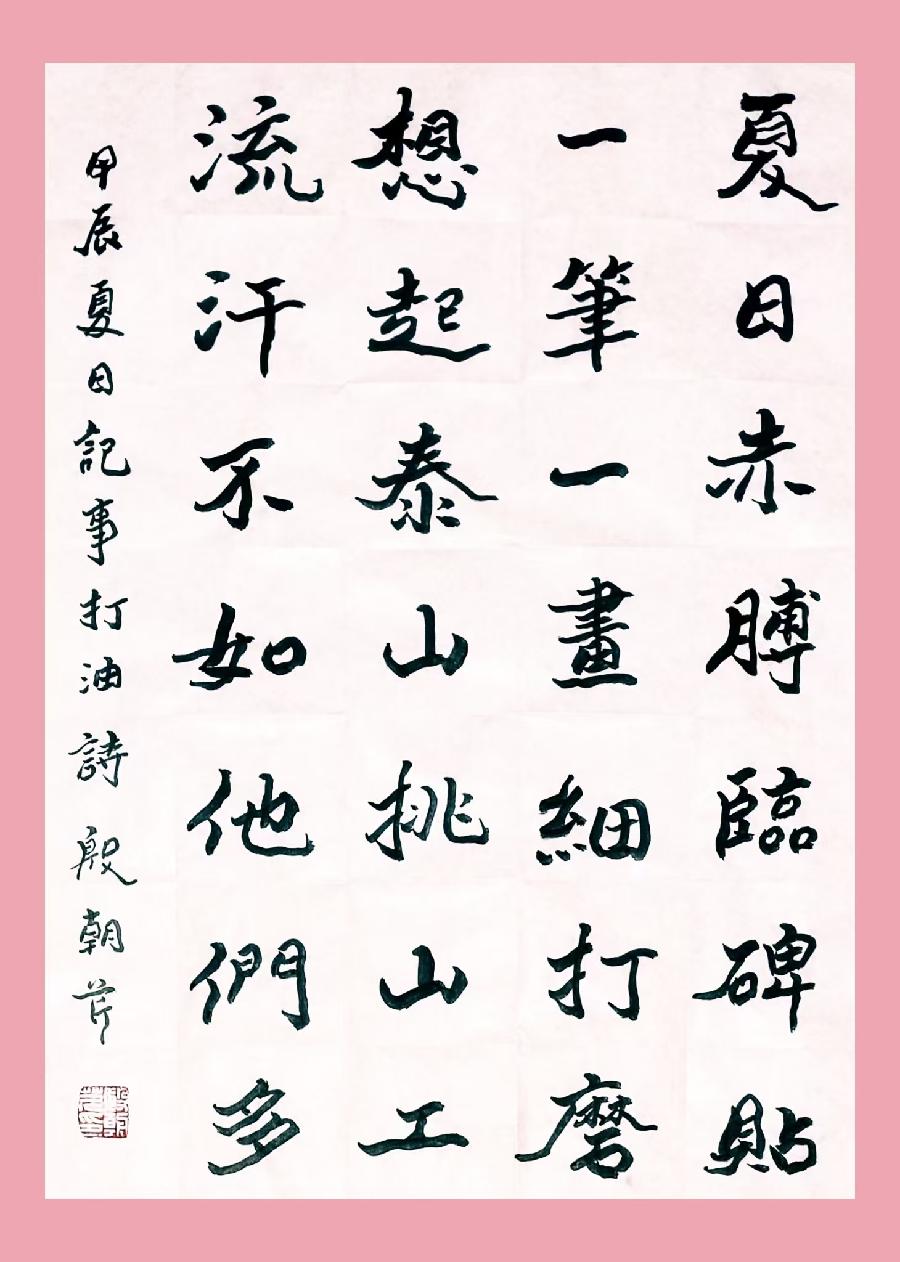 夏日赤膊臨碑貼
一筆一畫細打磨
想起泰山挑山工
流汗不如他們多
甲辰夏日記事打油詩 殷朝芹